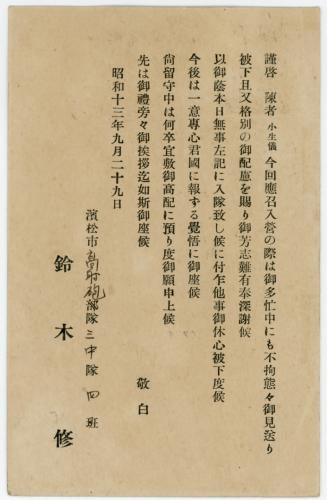 謹啓　陳者 小生儀 今回應召入營の際は御多忙中にも不拘態々御見送り
被下且又格別の御配慮を賜り御芳志難有奉深謝候
以御蔭本日無事左記に入隊致し候に付乍他事御休心被下度候
今後は一意專心君國に報ずる覺悟に御座候
尙留守中は何卒宜敷御高配に預り度御願申上候
先は御禮旁々御挨拶迄如斯御座候
敬白
昭和十三年九月二十九日
濱松市高射砲部隊三中隊四班
鈴木修